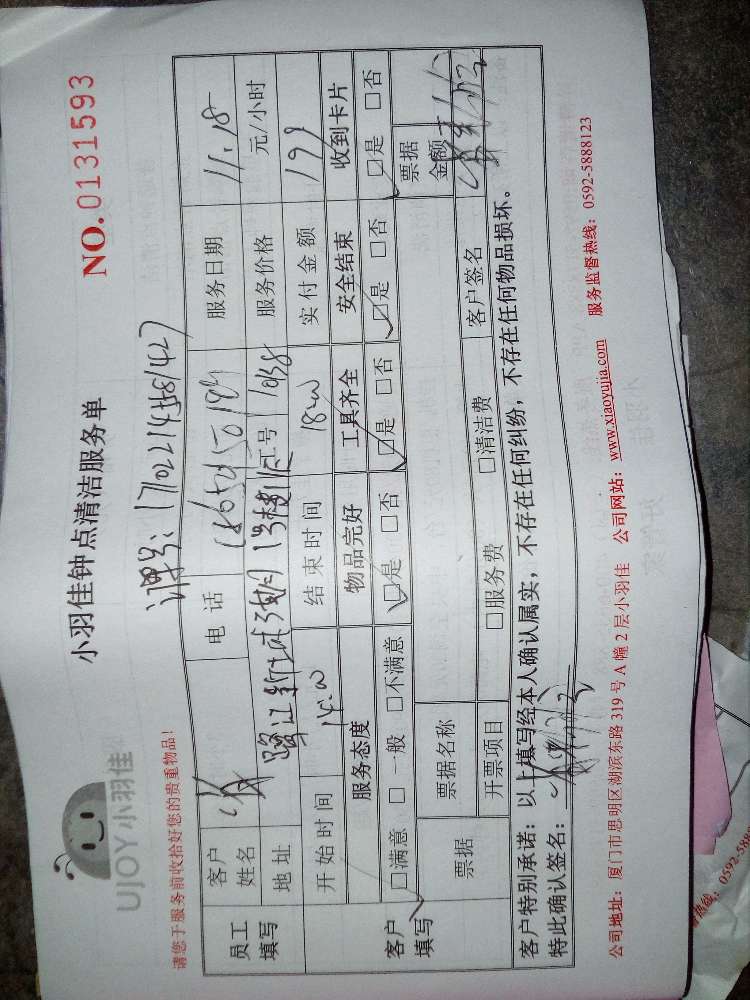 UJOY小羽佳
小羽佳钟点清洁服务单
NO.0131593
请您于服务前收拾好您的贵重物品！
员工填写
客户姓名
电话
服务日期 11.18
地址
工号 1038
服务价格 元/小时
开始时间 14:00
结束时间 18:00
实付金额 199
客户填写
服务态度 物品完好 工具齐全 安全结束 收到卡片
□满意 □一般 □不满意 □是 □否 □是 □否 □是 □否 □是 □否
票据
票据名称
票据金额
开票项目 □服务费 □清洁费
客户签名
客户特别承诺：以上填写经本人确认属实，不存在任何纠纷，不存在任何物品损坏。
特此确认签名：
公司地址：厦门市思明区湖滨东路 319 号 A 幢 2 层小羽佳 公司网站：www.xiaoyujia.com 服务监督热线：0592-5888123